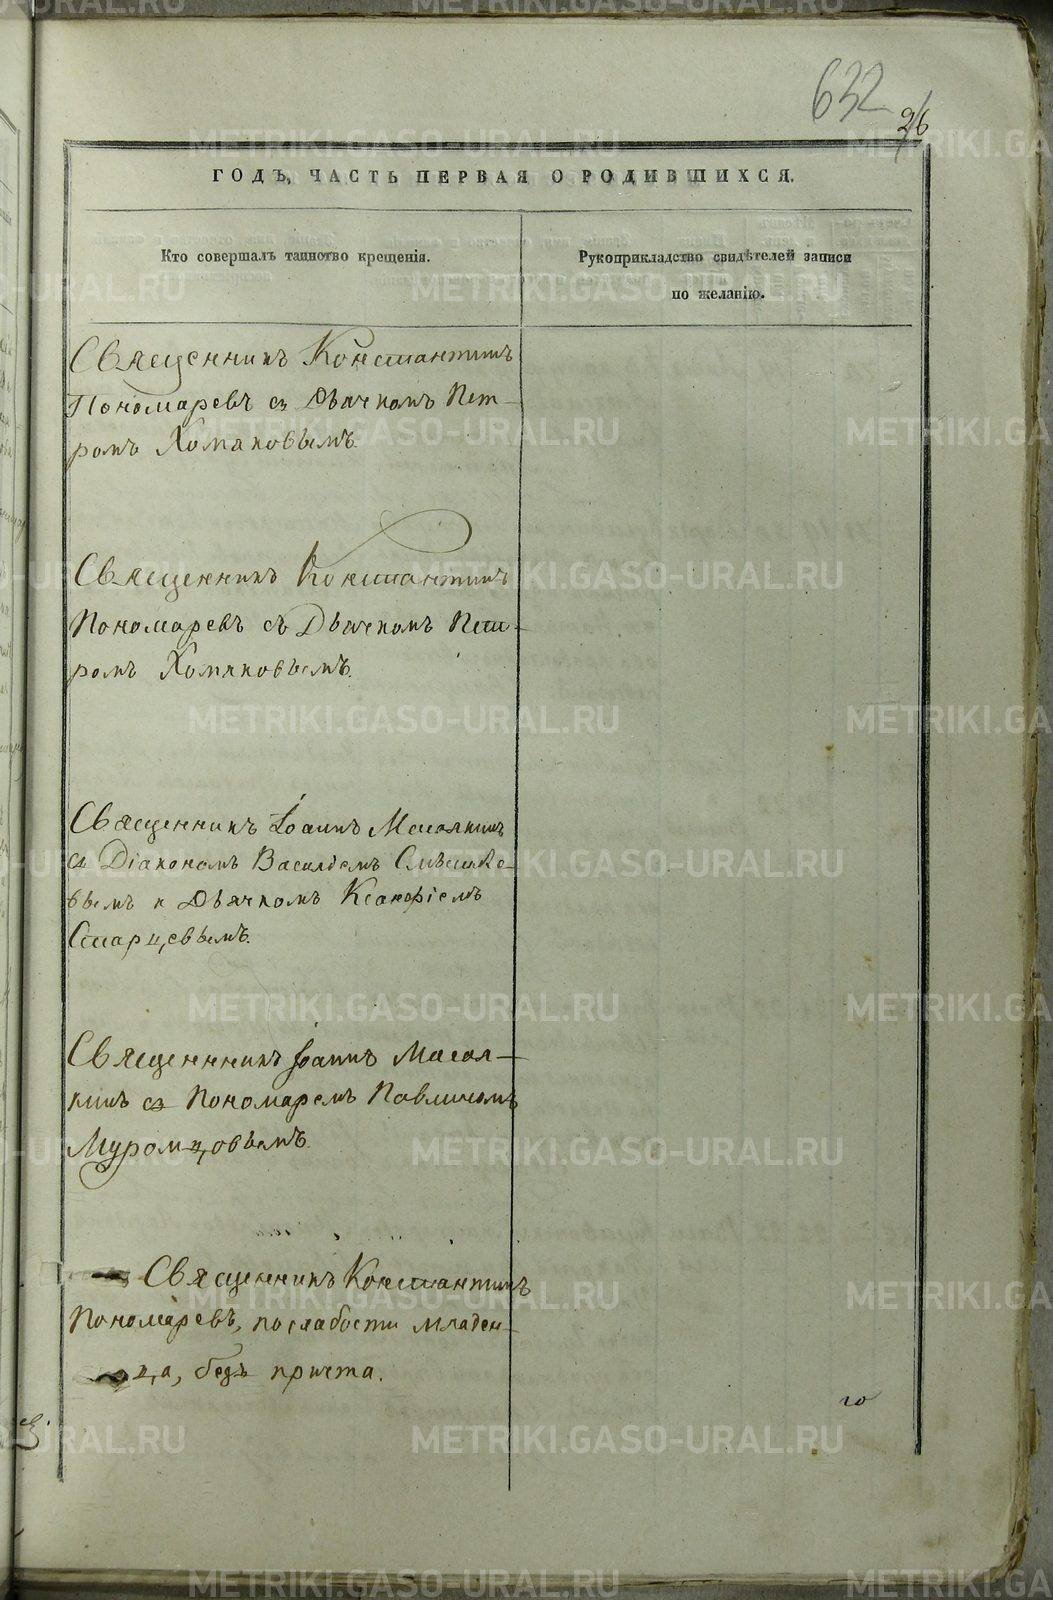 632
26
ГОДЪ, ЧАСТЬ ПЕРВАЯ О РОДИВШИХСЯ.
Кто совершалъ таинство крещенія.
Рукоприкладство свидѣтелей записи
по желанію.
Священникъ Константинъ
Пономаревъ съ Дьячкомъ Пет-
ромъ Хомяковымъ.
Священникъ Константинъ
Пономаревъ съ Дьячкомъ Пет-
ромъ Хомяковымъ.
Священникъ Іоаннъ
съ Діакономъ Василіемъ
вымъ и Дьячкомъ
Старцевымъ.
Священникъ Іоаннъ Масол-
кинъ съ Пономаремъ Павлиномъ
Муромцовымъ.
Священникъ Константинъ
Пономаревъ, по слабости младен-
ца, безъ причта.
METRIKI.GASO-URAL.RU